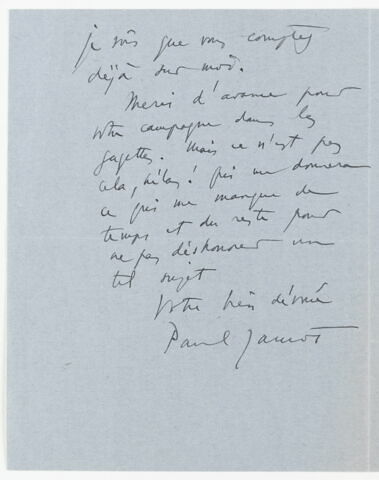 je sais que vous comptez
déjà sur moi.
Merci d'avance pour
votre campagne dans les
gazettes. Mais ce n'est pas
cela, hélas! qui me donnera
ce qui me manque de
temps et du reste pour
ne pas déshonorer un
tel sujet
Votre bien dévoué
Paul Jamot